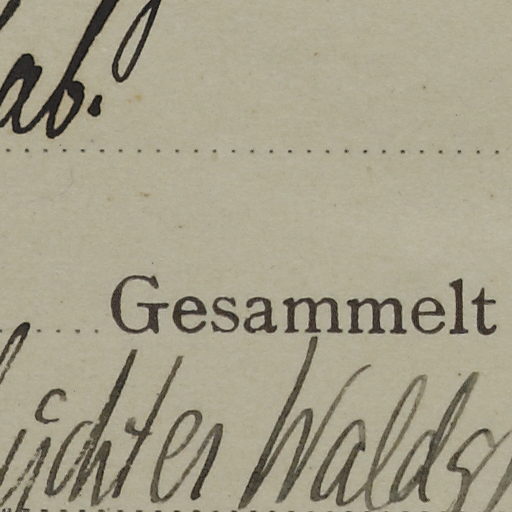 ab.
Gesammelt
lichter Wald